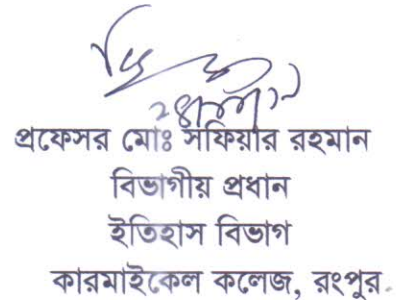 প্রফেসর মোঃ সফিয়ার রহমান
বিভাগীয় প্রধান
ইতিহাস বিভাগ
কারমাইকেল কলেজ, রংপুর.